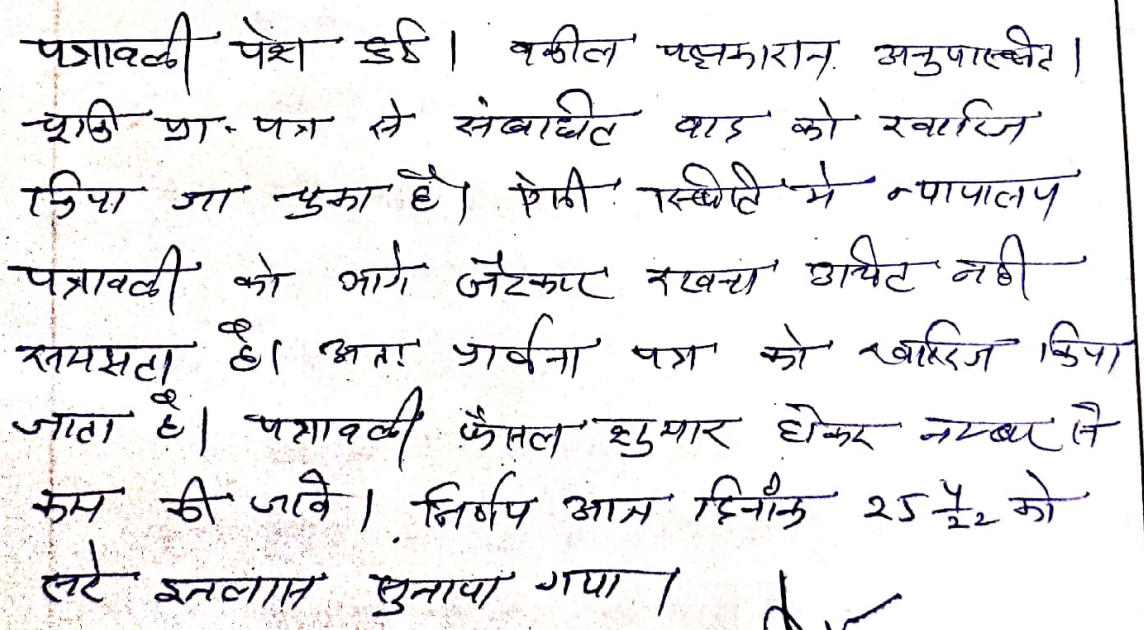 पत्रावली पेश हुई। वकील पक्षकारान अनुपस्थित।
चूंकि प्रा. पत्र से संबंधित वाद को खारिज
किया जा चुका है। ऐसी स्थिति मे न्यायालय
पत्रावली को आगे जेरकार रखना उचित नही
समझता है। अतः प्रार्थना पत्र को खारिज किया
जाता है। पत्रावली फैसल शुमार होकर नम्बर से
कम की जावे। निर्णय आज दिनाँक 25 4/22 को
सरे इजलास सुनाया गया।